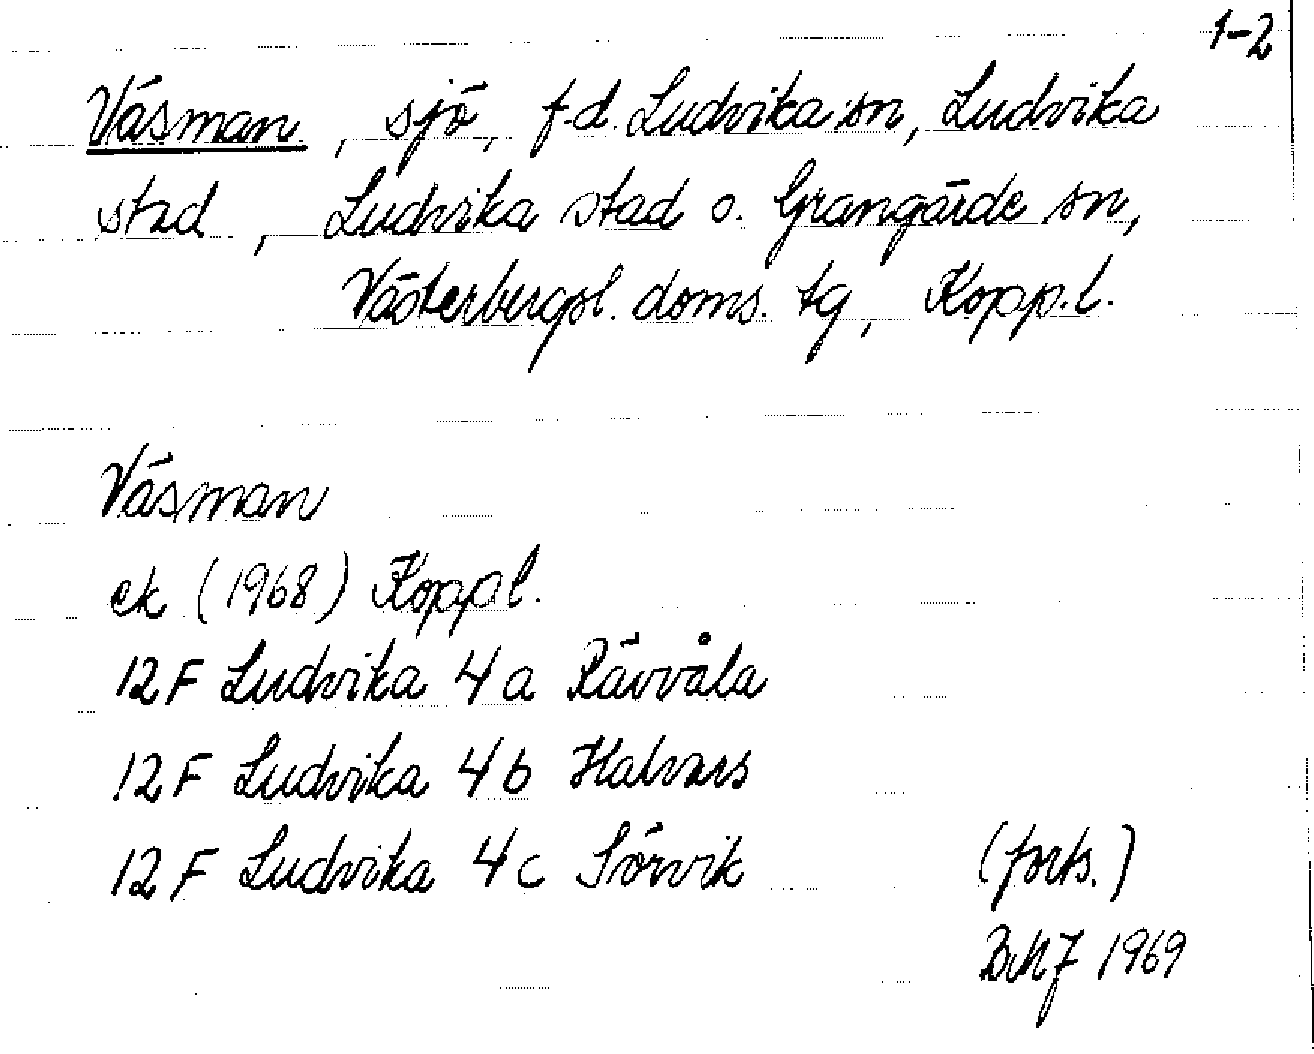 1-2
Väsman, sjö, f.d. Ludvika sn, Ludvika
stad, Ludvika stad o. Grangärde sn,
Västerbergsl. doms. tg, Kopp.l.
Väsman
ek (1968) Kopp l.
12 F Ludvika 4 a Rävvåla
12 F Ludvika 4 b Halvars
12 F Ludvika 4 c Sörvik
(forts.)
BMJ 1969